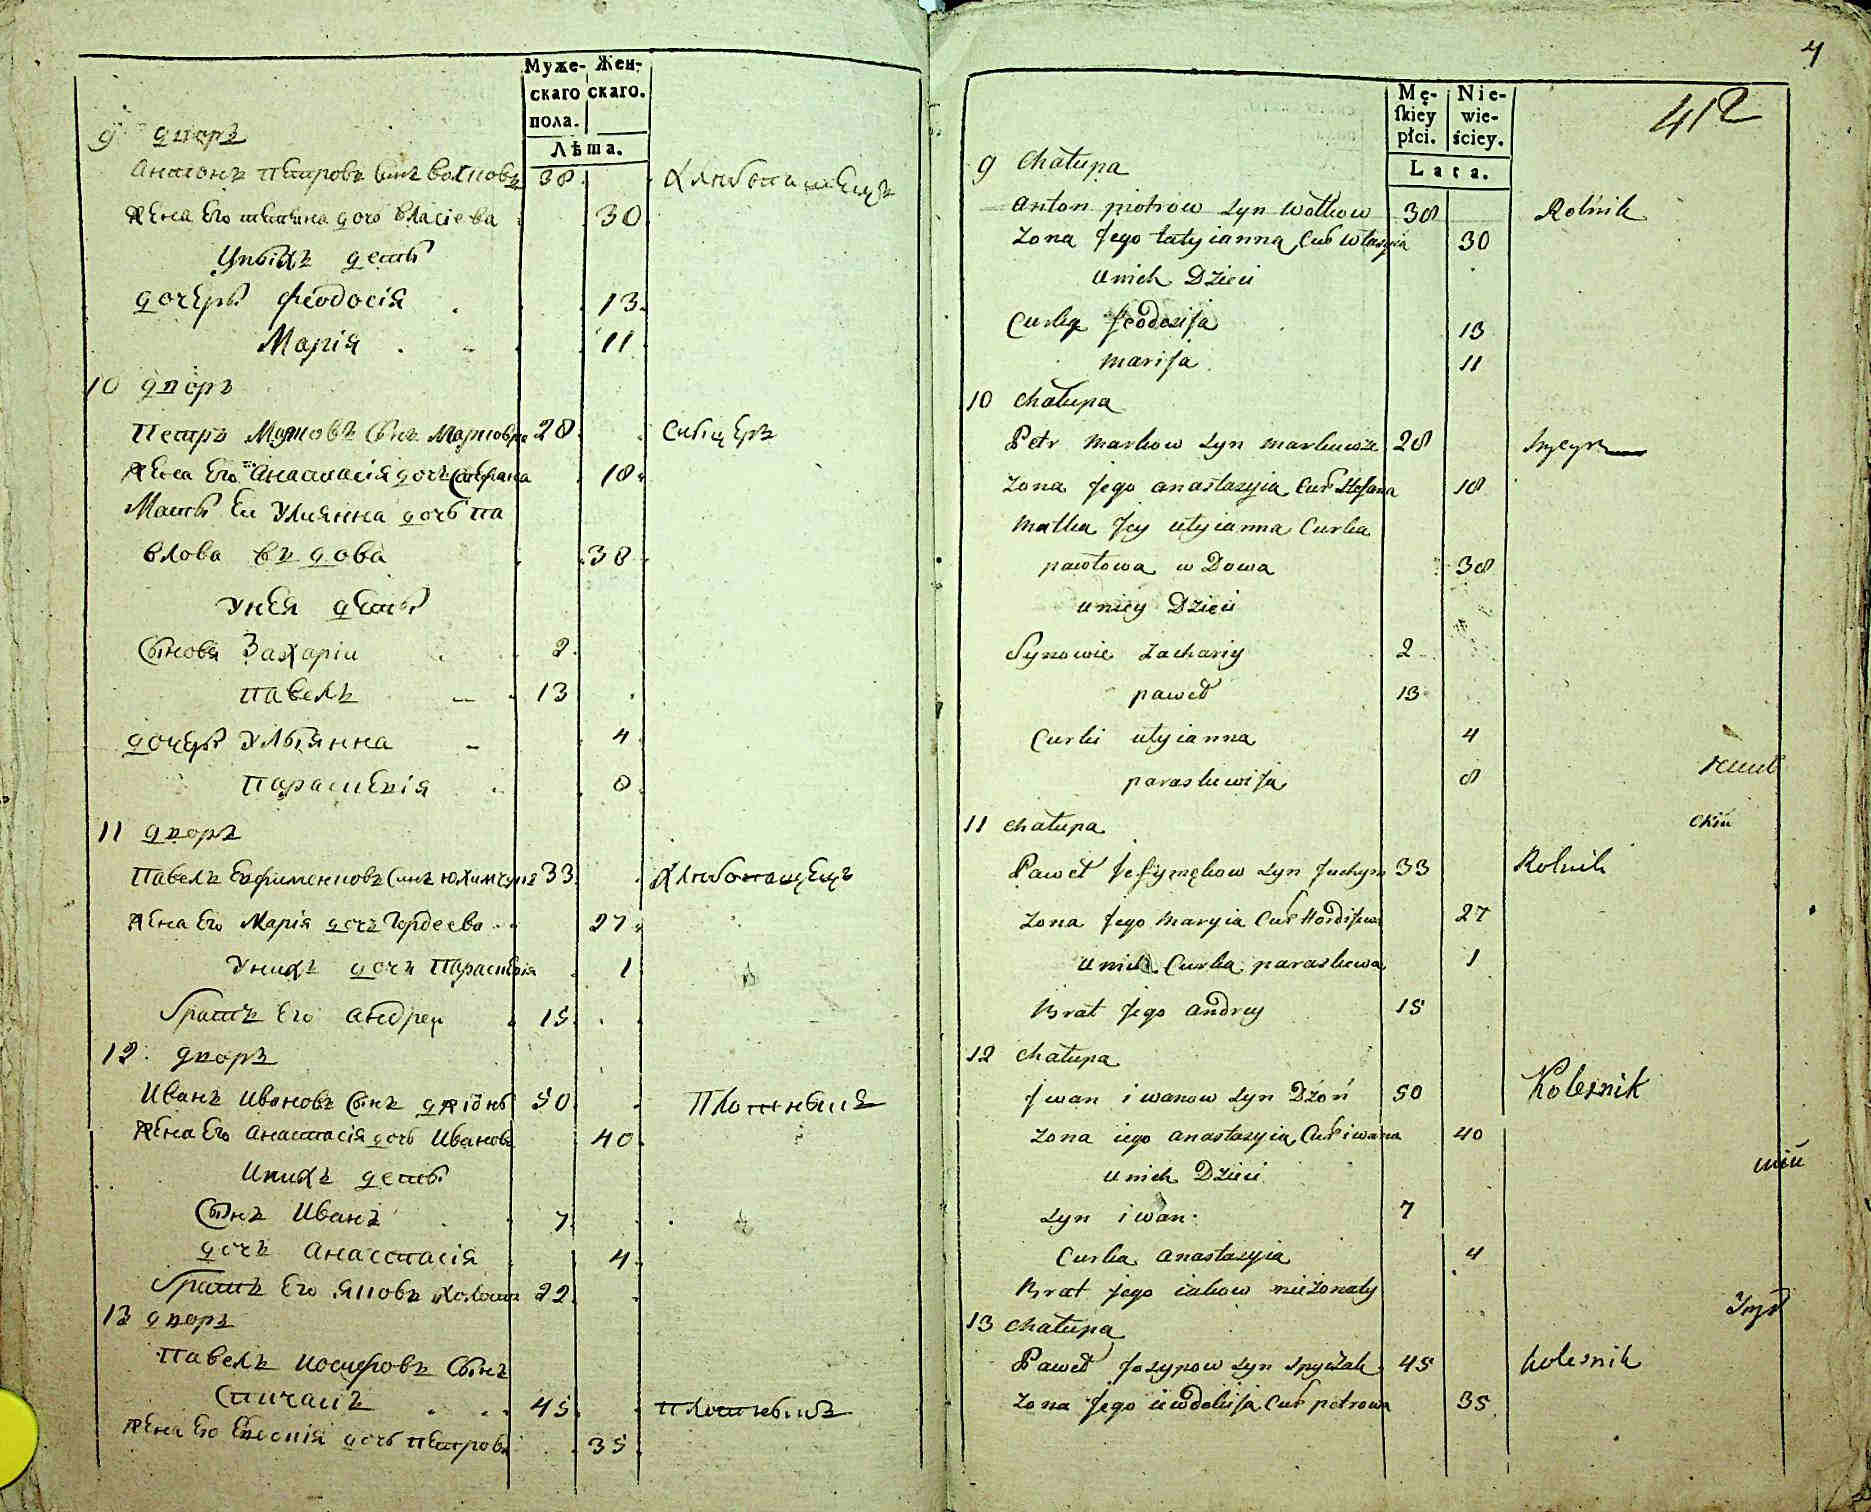 Муже- Жен-
скаго скаго.
пола.
Лѣта.
9 дворъ
Антонъ Петровъ сынъ Волковъ 38 Хлибопашецъ
Жена Его дочь Власієва 30
дети
дочери Феодосія 13
Марія 11
10 дворъ
Петръ Марковъ сынъ 28
Жена Его Анастасія дочь Стефана 18
Мать Ей Улиянна дочь Па
влова вдова 38
У нея дети
Сыновя Захарій 2
Павелъ 13
дочери Ульянна 4
Параскевія 8
11 дворъ
Павелъ сынъ 33 Хлибопашецъ
Жена Его Марія дочь Гордеева 27
У нихъ дочь Параскевія 1
Братъ Его Андрей 15
12 дворъ
Иванъ Ивановъ сынъ 50
Жена Его Анастасія дочь Иванова 40
дети
Сынъ Иванъ 7
дочь Анастасія 4
Братъ Его Яковъ 22
13 дворъ
Павелъ Иосифовъ Сынъ
45
Жена Его дочь Петрова 35
4
412
Mę- Nie-
ſkiey wie-
płci. ściey.
Lata.
9 Chałupa
Anton piotrow Syn Wołkow 38 Rolnik
Zona Jego tatyianna Cur Własyia 30
u nich Dzieci
Curka feodozija 13
marija 11
10 Chałupa
Petr markow Syn 28
Zona Jego anastazyia Cur Stefana 18
matka Jey ulyianna Curka
pawłowa w Dowa 38
u niey Dzieci
Synowie Zachariy 2
paweł 13
Curki ulyianna 4
paraskewija 8
11 Chałupa
Paweł Syn 33 Rolnik
Zona Jego maryia Cur 27
u nich Curka paraskewia 1
Brat Jego andrey 15
12 Chałupa
Jwan iwanow Syn Dzoń 50 Kolesnik
Zona iego anastazyia Cur iwana 40
u nich Dzieci
Syn iwan 7
Curka anastazyia 4
Brat Jego iakow nieżonaty
13 Chałupa
Paweł Jozypow Syn Spyczak 45 kolesnik
Zona Jego iewdokija Cur petrowa 35